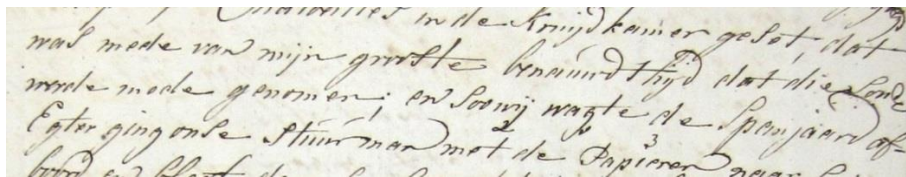 in de Kruijd kamer geset, dat
was mede van mijn grootste benauwdthijd dat die Soude
worde mede genomen; en soo wij wagte de Spanjaard af
Egter ging onse Stuurman met de Papieren naar
boord en bleef